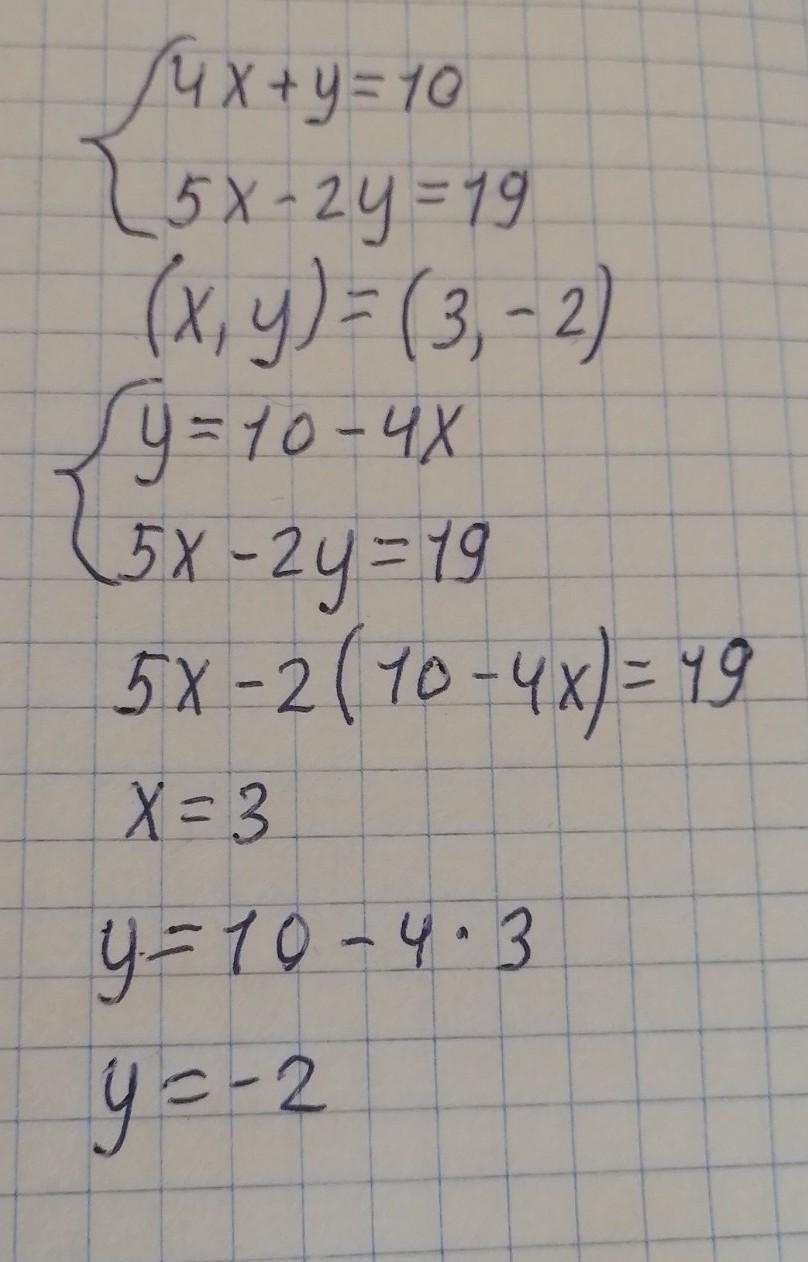 {4x+y=10
5x-2y=19
(x,y)=(3,-2)
{y=10-4x
5x-2y=19
5x-2(10-4x)=19
x=3
y=10-4·3
y=-2